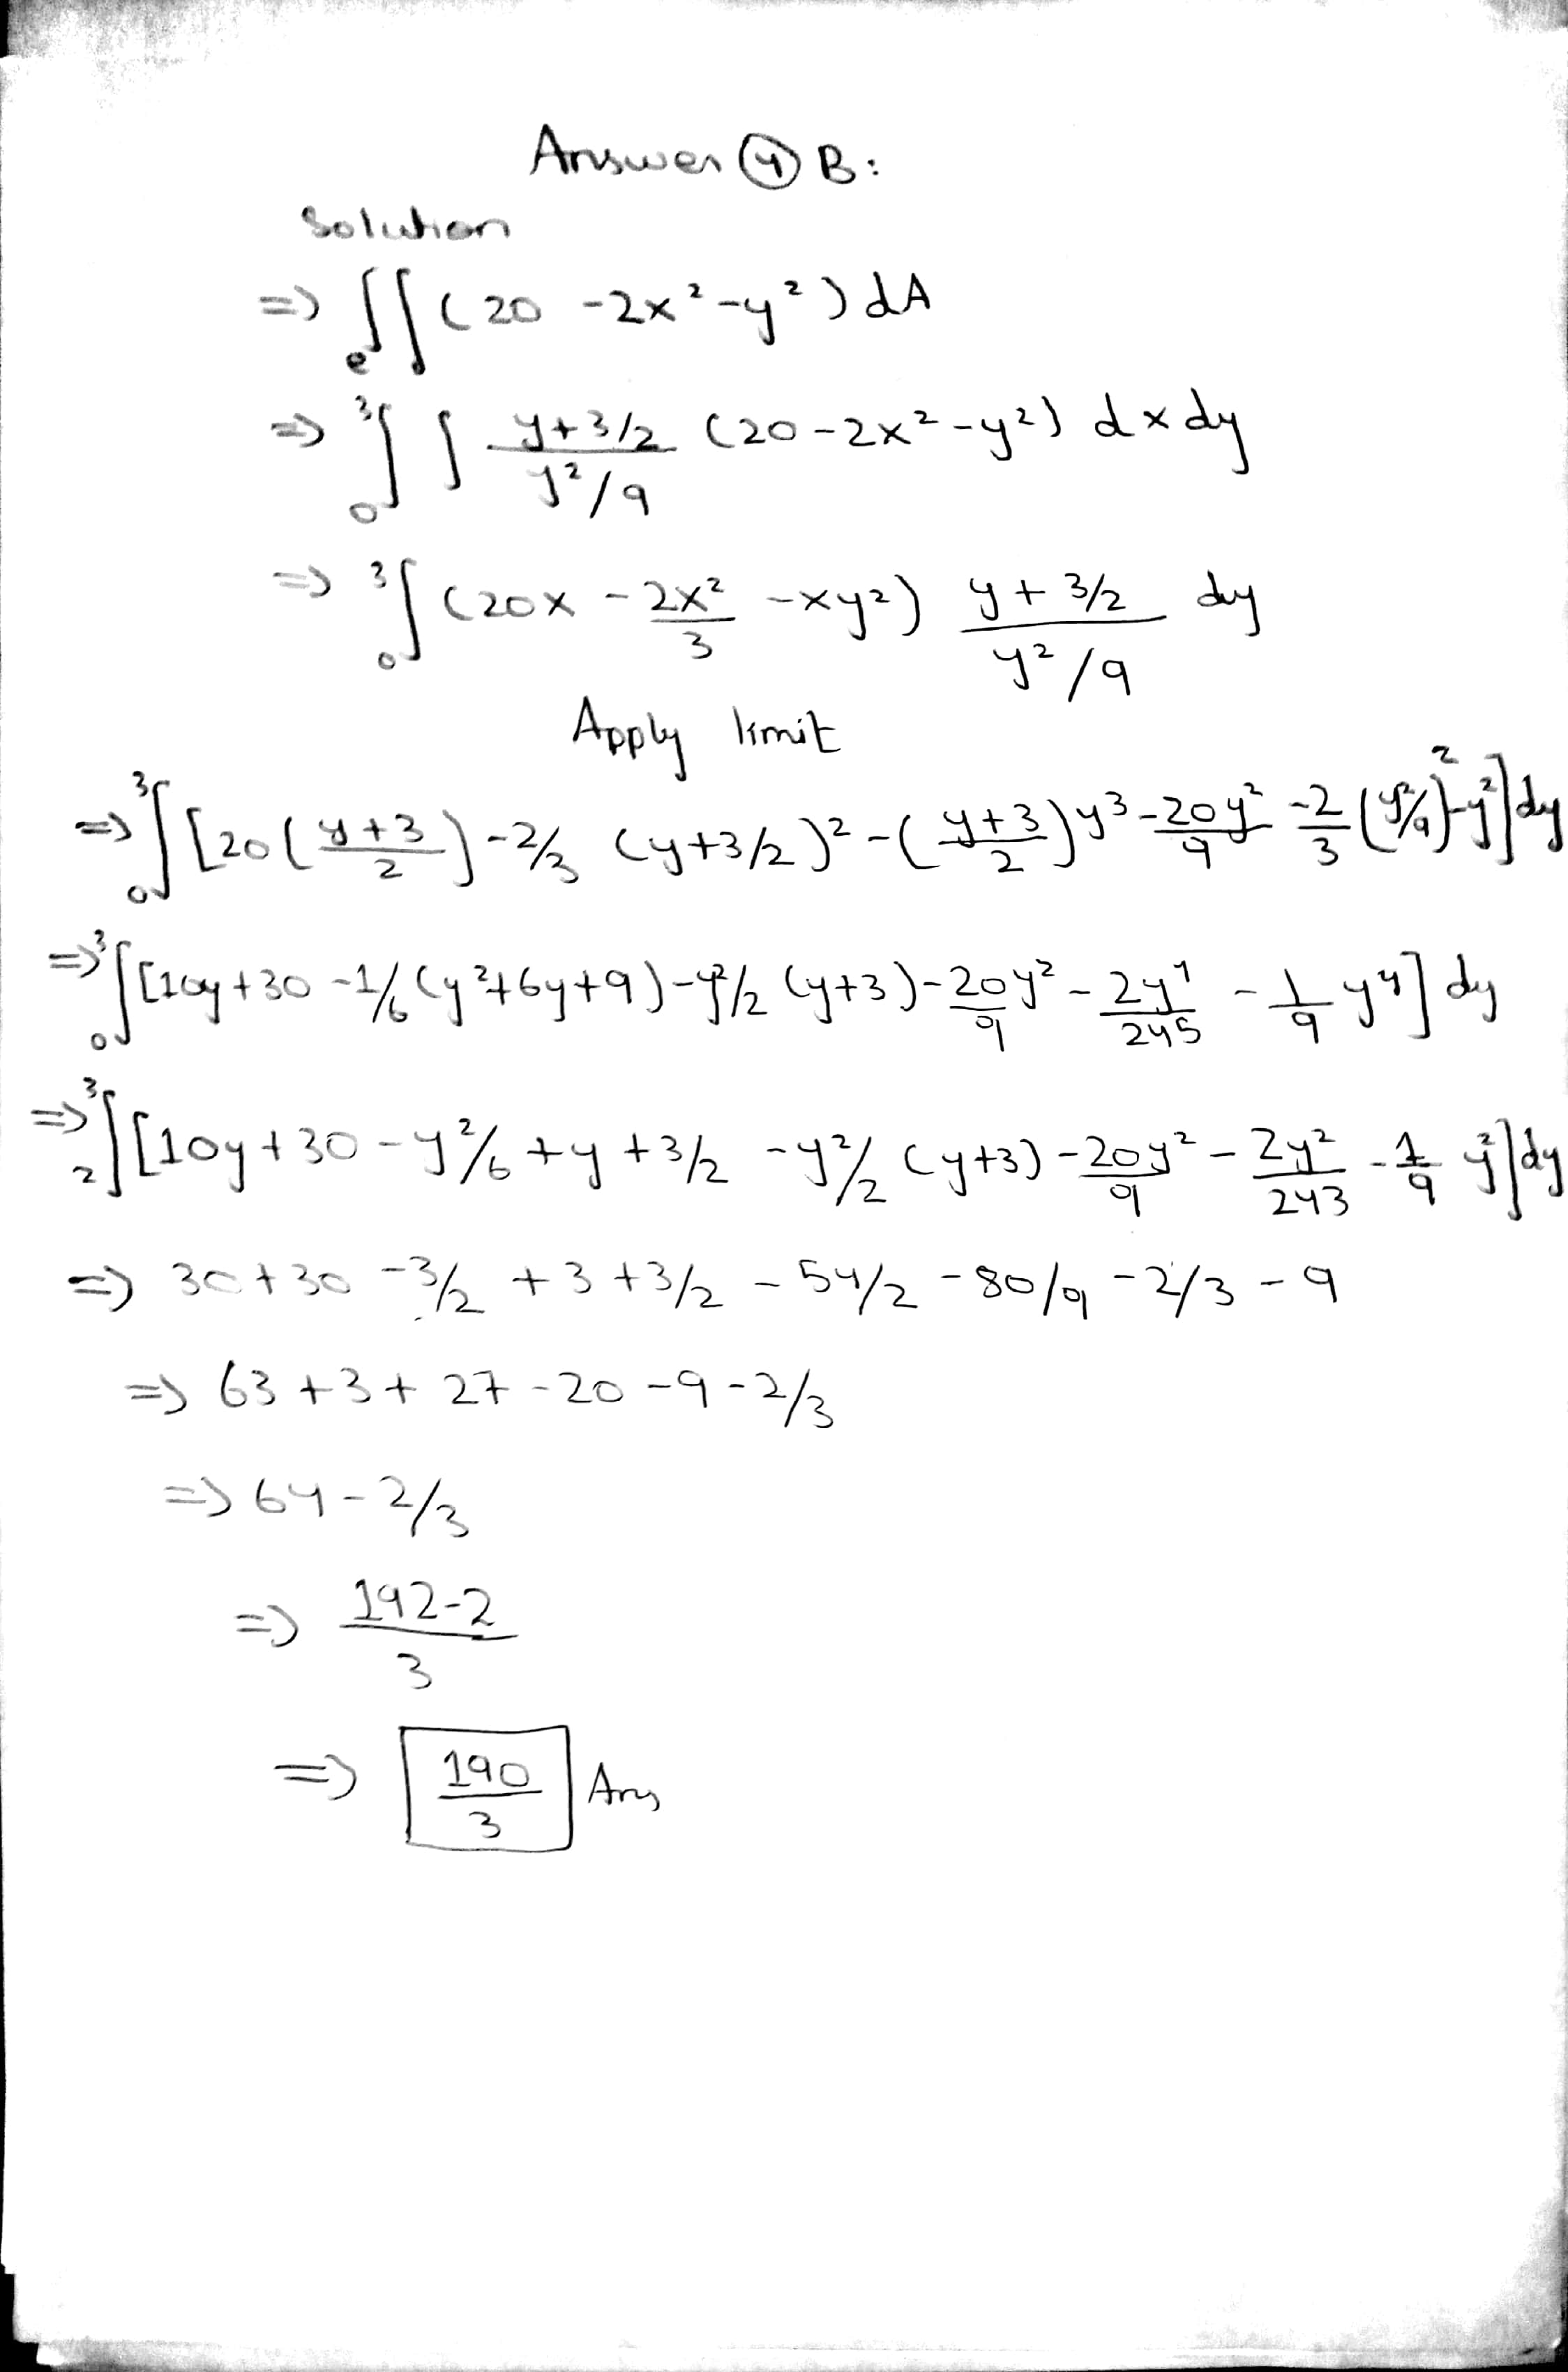 Answer ④ B:
Solution
=> ∫∫ (20 -2x² -y²) dA
=> ³∫₀ ∫ y+3/2 / y²/9 (20-2x²-y²) dxdy
=> ³∫₀ (20x - 2x²/3 -xy²) y+3/2 / y²/9 dy
Apply limit
=> ³∫₀ [20(y+3/2) -2/3 (y+3/2)² -(y+3/2)y³ -20y²/9 -2/3 (y²/9)² -y²] dy
=> ³∫₀ [10y+30 -1/6(y²+6y+9) -y²/2 (y+3) -20y²/9 - 2y⁴/245 - 1/9 y⁴] dy
=> ³∫₂ [10y+30 -y²/6 +y +3/2 -y²/2 (y+3) -20y²/9 - 2y²/243 - 1/9 y²] dy
=> 30+30 -3/2 +3 +3/2 - 54/2 -80/9 -2/3 -9
=> 63+3+27-20-9-2/3
=> 64-2/3
=> 192-2/3
=> 190/3 Ans